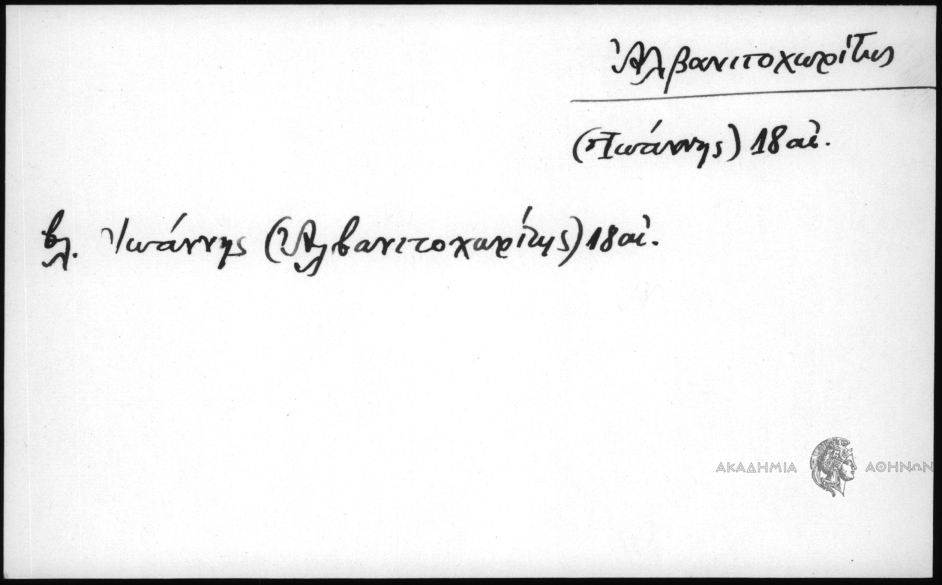 Ἀλβανιτοχωρίτης
(Ἰωάννης) 18 αἰ.
βλ. Ἰωάννης (Ἀλβανιτοχωρίτης) 18 αἰ.
ΑΚΑΔΗΜΙΑ ΑΘΗΝΩΝ